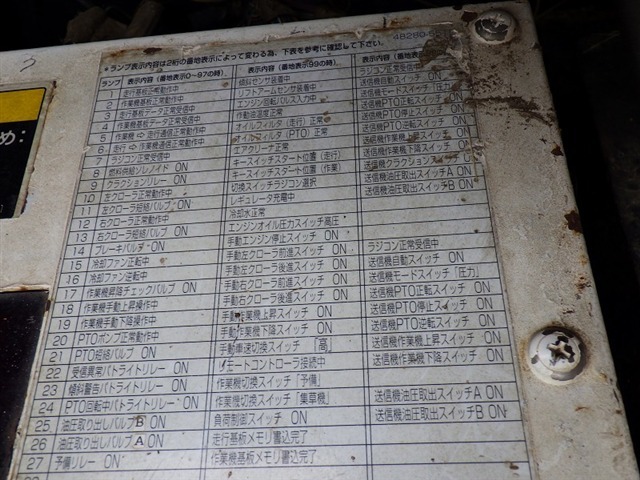 48280-
*ランプ表示内容は2桁の番地表示によって変わる為、下表を参考に確認して下さい。
ランプ 表示内容(番地表示0~97の時) 表示内容(番地表示99の時)
走行基板正常動作中 傾斜センサ装着中 ラジコン正常
2 作業機基板正常動作中 リフトアームセンサ装着中 送信機自動スイッチ ON
3 走行基板データ正常受信中 エンジン回転パルス入力中 送信機モードスイッチ「圧力
4 作業機基板データ正常受信中 作動油温度正常 送信機PTO正転スイッチ
5 作業機 ⇨ 走行通信正常動作中 オイルフィルタ(走行)正常 送信機PTO停止スイッチ
6 走行 ⇨ 作業機通信正常動作中 オイルフィルタ(PTO)正常 送信機PTO逆転スイッチ ON
7 ラジコン正常受信中 エアクリーナ正常 送信機作業機上昇スイッチ
8 燃料供給ソレノイド ON キースイッチスタート位置(走行) 送信機作業機下降スイッチ ON
9 クラクションリレー ON キースイッチスタート位置(作業) 送信機クラクションス
10 左クローラ正常動作中 切換スイッチラジコン選択 送信機油圧取出スイッチA ON
11 左クローラ短絡バルブ ON レギュレータ充電中 送信機油圧取出スイッチB ON
12 右クローラ正常動作中 冷却水正常
13 右クローラ短絡バルブ ON エンジンオイル圧力スイッチ高圧
14 ブレーキバルブ ON 手動エンジン停止スイッチ ON ラジコン正常受信中
15 冷却ファン正転中 手動左クローラ前進スイッチ ON 送信機自動スイッチ ON
16 冷却ファン逆転中 手動左クローラ後進スイッチ ON 送信機モードスイッチ「圧力」
17 作業機昇降チェックバルブ ON 手動右クローラ前進スイッチ ON 送信機PTO正転スイッチ ON
18 作業機手動上昇操作中 手動右クローラ後進スイッチ ON 送信機PTO停止スイッチ ON
19 作業機手動下降操作中 手動作業機上昇スイッチ ON 送信機PTO逆転スイッチ ON
20 PTOポンプ正常動作中 手動作業機下降スイッチ ON 送信機作業機上昇スイッチ ON
21 PTO短絡バルブ ON 手動車速切換スイッチ「高」 送信機作業機下降スイッチ ON
22 受信異常パトライトリレー ON モートコントローラ接続中
23 傾斜警告パトライトリレー ON 作業機切換スイッチ「予備」
24 PTO回転中パトライトリレー ON 作業機切換スイッチ「集草機」 送信機油圧取出スイッチA ON
25 油圧取り出しバルブB ON 負荷制御スイッチ ON 送信機油圧取出スイッチB ON
26 油圧取り出しバルブA ON 走行基板メモリ書込完了
27 予備リレー ON 作業機基板メモリ書込完了
め: